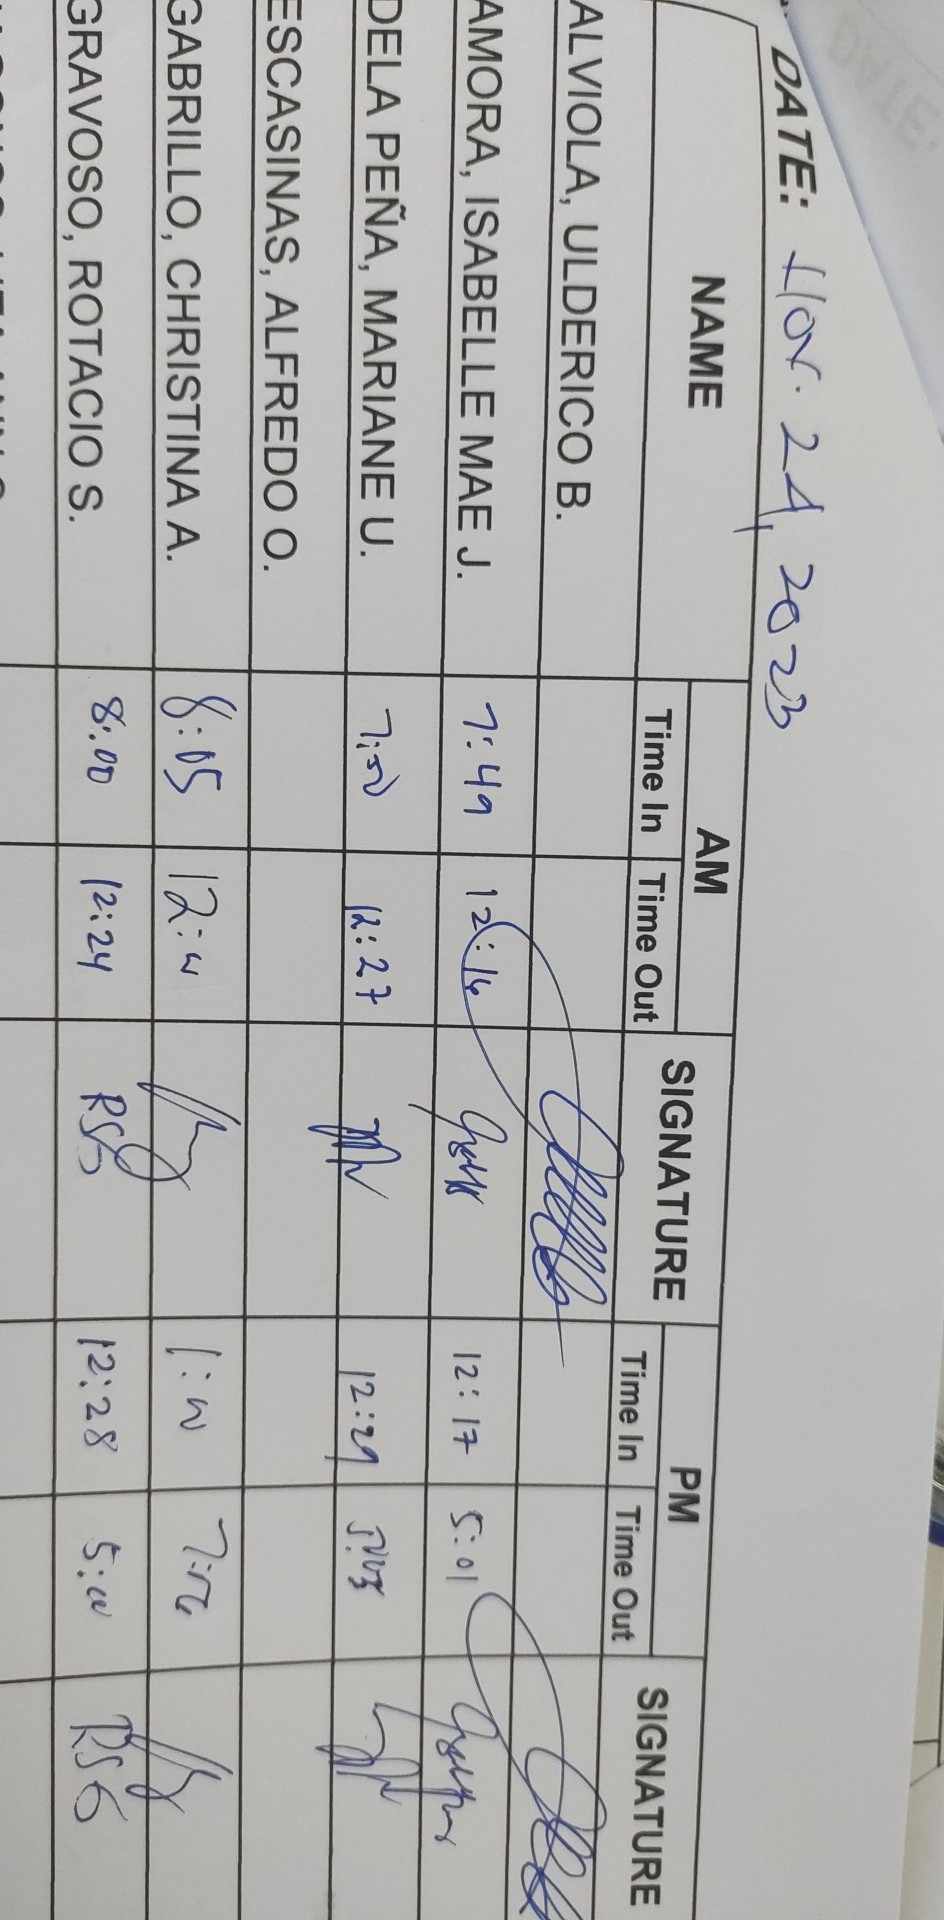 DATE: Nov. 24, 2023
NAME AM SIGNATURE PM SIGNATURE
Time In Time Out Time In Time Out
ALVIOLA, ULDERICO B.
AMORA, ISABELLE MAE J. 7:49 12:16 12:17 5:01
DELA PEÑA, MARIANE U. 7:50 12:27 12:29 5:03
ESCASINAS, ALFREDO O.
GABRILLO, CHRISTINA A. 8:05
GRAVOSO, ROTACIO S. 8:00 12:24 RSG 12:28 5:00 RSG